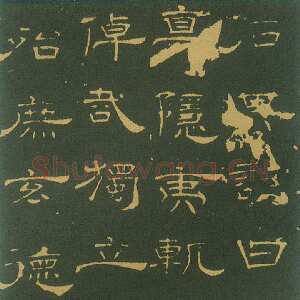 曰
隱夷軌
倬哉獨立
殆庶玄德
Shufawang.CN